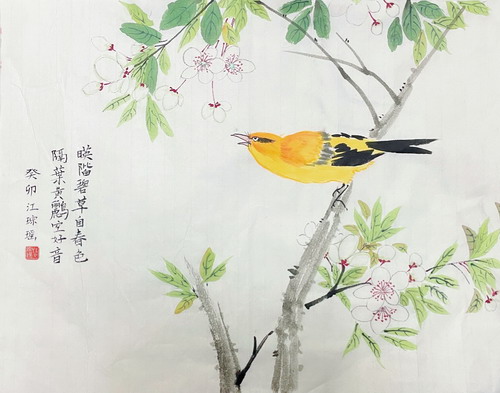 暎階碧草自春色
隔葉黄鸝空好音
癸卯江